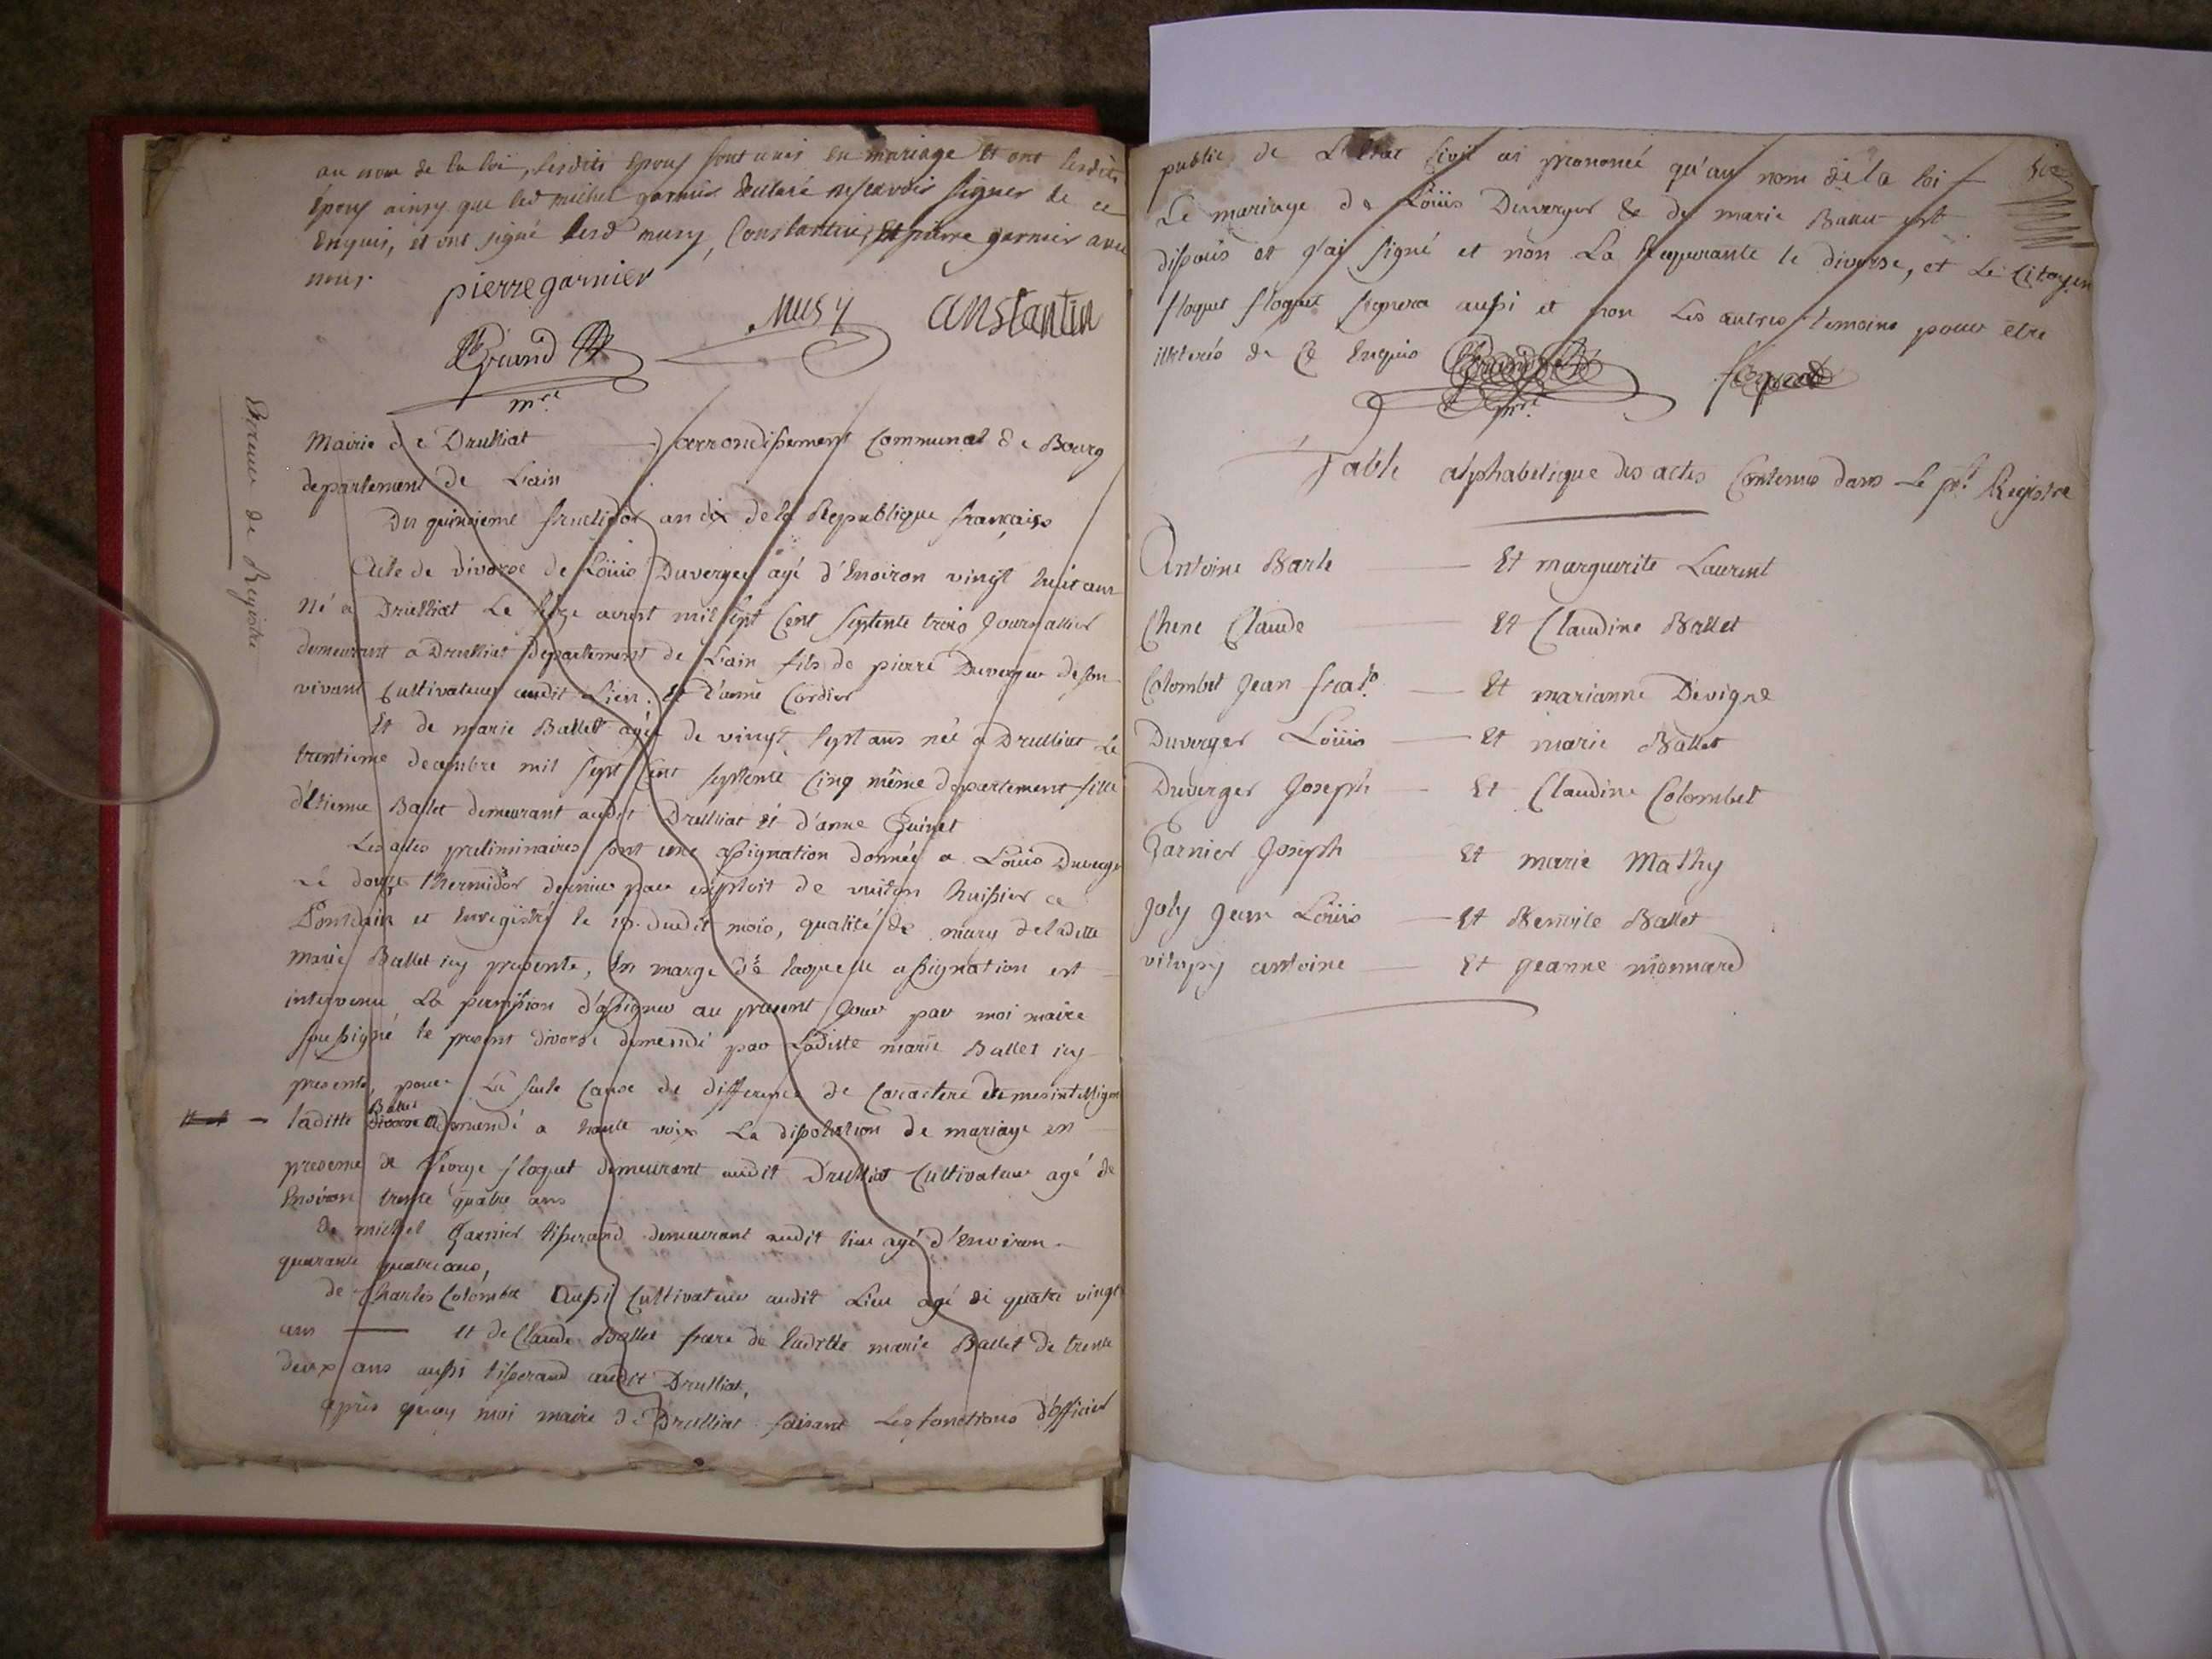 au nom de la loi, lesdits Epoux sont unis en mariage et ont lesdits
Epoux ainsy que led michel garnier declaré ne scavoir signer de ce
Enquis, et ont signé lesd musy, Constantin, Et pierre garnier avec
nous.
pierre garnier
musy
Constantin
Grand
m.re
Erreur de Registre
Mairie de Drulliat arrondissement Communal de Bourg
departement de L'ain
Du quinzieme fructidor an dix de la Republique francaise
Acte de divorce de Loüis Duverger agé d'Environ vingt huit ans
né a Drulliat Le aoust mil sept Cent septente trois Journallier
demeurant a Drulliat departement de L'ain fils de pierre Duverger de son
vivant Cultivateur audit Lieu. Et d'anne Cordier
Et de marie Ballet agée de vingt sept ans née a Drulliat Le
trentieme decembre mil sept Cent septente Cinq même departement fille
d'Etienne Ballet demeurant audit Drulliat et d'anne Guinet
Les actes preliminaires sont une assignation donnée a Loüis Duverger
Le douze thermidor dernier par exploit de huissier a
Pontdain et Enregistré le 19. dudit mois, qualité de mary de laditte
marie Ballet icy presente, En marge de laquelle assignation est
intervenu La permission d'assigner au present Jour par moi maire
soussigné le present divorse demendé par Laditte marie Ballet icy
presente, pour La seule Cause de difference de Caractere et mesintelligence
laditte Ballet demendé a haute voix La dissolution de mariage en
presence de George floquet demeurant audit Drulliat Cultivateur agé de
Environ trente quatre ans
de michel Garnier tisserand demeurant audit lieu agé d'Environ
quarante quatre ans,
de Charles Colombet aussi Cultivateur audit Lieu agé de quatre vingt
ans Et de Claude Ballet frere de laditte marie Ballet de trente
deux ans aussi tisserand audit Drulliat,
après quoy moi maire de Drulliat faisant Les fonctions d'officier
public de L'Etat Civil ai prononcé qu'au nom de la loi
Le mariage de Loüis Duverger & de marie Ballet est
dissous et j'ai signé et non La Requerante le divorse, et Le Citoyen
floquet floquet signera aussi et non Les autres temoins pour etre
illiterés de Ce Enquis
Grand
m.re
floquet
Table alphabetique des actes Contenus dans Le pt. Registre
Antoine Barle Et marguerite Laurent
Chene Claude Et Claudine Ballet
Colombet Jean Et marianne Devigne
Duverger Loüis Et marie Ballet
Duverger Joseph Et Claudine Colombet
Garnier Joseph Et marie Mathy
Joly Jean Loüis Et Benoite Ballet
vitupy antoine Et Jeanne monnard